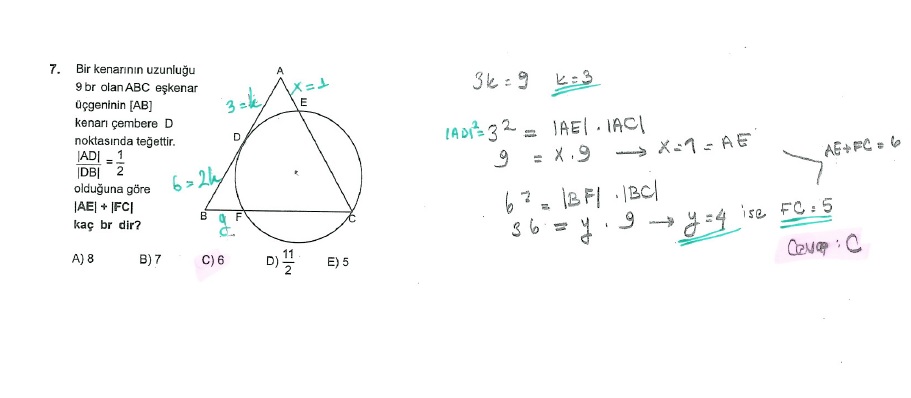 7. Bir kenarının uzunluğu
9 br olan ABC eşkenar
üçgeninin [AB]
kenarı çembere D
noktasında teğettir.
|AD|/|DB| = 1/2
olduğuna göre
|AE| + |FC|
kaç br dir?
A) 8 B) 7 C) 6 D) 11/2 E) 5
A
x=1
E
3=k
D
6=2k
B
F
y
C
3k=9 k=3
|AD|²=3² = |AE|.|AC|
9 = x.9 → x=1=AE
AE+FC=6
6² = |BF|.|BC|
36 = y.9 → y=4 ise FC=5
Cevap: C